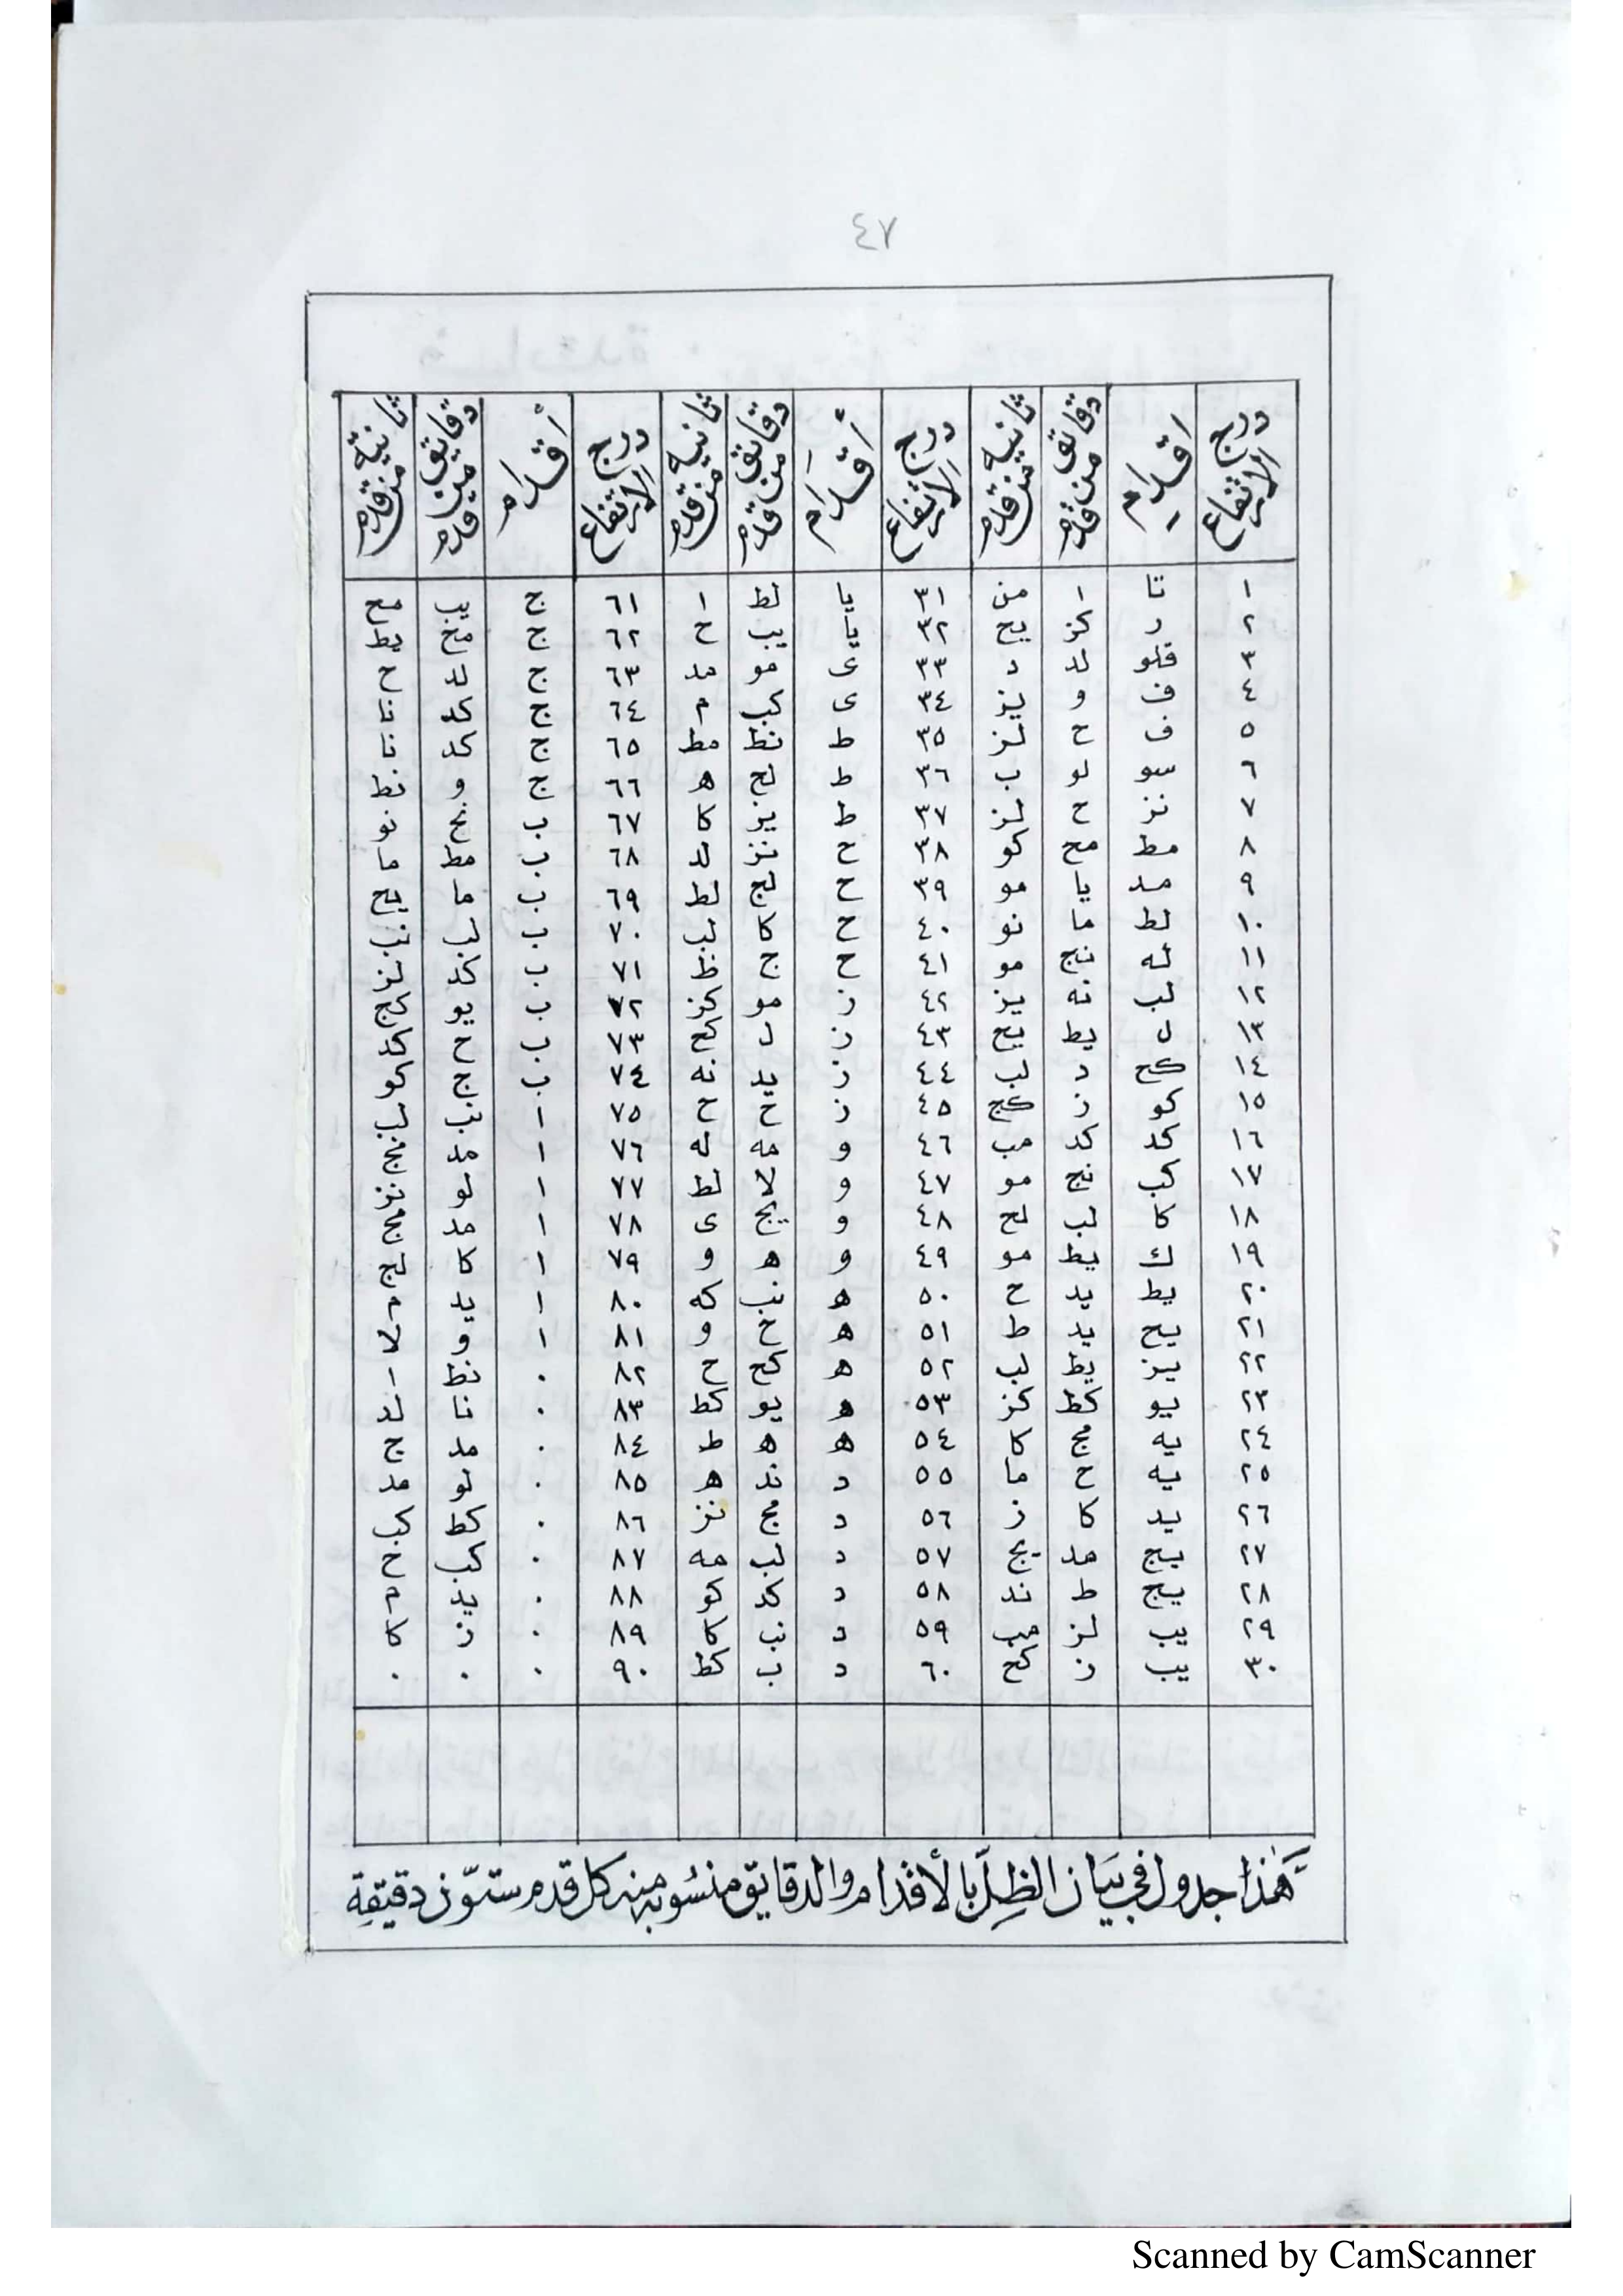 ٤٧
درج الارتفاع اقدام دقائق من قدم ثانية من قدم درج الارتفاع أقدام دقائق من قدم ثانية من قدم درج الارتفاع أقدام دقائق من قدم ثانية من قدم
١ تا ا من ٣١ يا لط ا ٦١ ج يب مح
٢ ر كز يح ٣٢ يا يب ح ٦٢ ج مح يط
٣ قلو لد د ٣٣ ى مو مد ٦٣ ج لد ح
٤ ف و يز ٣٤ ى كب م ٦٤ ج كد نا
٥ ف ح لز ٣٥ ط نط مط ٦٥ ج كد نا
٦ سو لو ب ٣٦ ط لح ه ٦٦ ج و نط
٧ نز ح لز ٣٧ ط يز كا ٦٧ ب نج نو
٨ مط مح كو ٣٨ ح نز لد ٦٨ ب مط ما
٩ مد يا مو ٣٩ ح لج لط ٦٩ ب ما يح
١٠ لط ما نو ٤٠ ح كا لب ٧٠ ب لب نب
١١ له نج مو ٤١ ح ج ظ ٧١ ب كد لز
١٢ لب نه يز ٤٢ ز مو كز ٧٢ ب يو كج
١٣ ل يط يح ٤٣ ز ل كح ٧٣ ب ح كد
١٤ كح د لب ٤٤ ز يد نه ٧٤ ب ج كو
١٥ كو ز كج ٤٥ ز ح ح ٧٥ ا نب لب
١٦ كد كد مب ٤٦ و مه له ٧٦ ا مد نج
١٧ كب نج مو ٤٧ و لا لط ٧٧ ا لو نز
١٨ كا لب لح ٤٨ و يج ى ٧٨ ا مد مج
١٩ ك يط مو ٤٩ و ه و ٧٩ ا كا لج
٢٠ يط يد ح ٥٠ ه نب كه ٨٠ ا يد م
٢١ يح يد ط ٥١ ه خ و ٨١ ا و لا
٢٢ يز يظ لب ٥٢ ه كح ح ٨٢ ٠ نظ ا
٢٣ يو كظ كز ٥٣ ه يو كط ٨٣ ٠ نا لد
٢٤ يه مج كا ٥٤ ه ه ط ٨٤ ٠ مد ج
٢٥ يه ح ما ٥٥ د ند ه ٨٥ ٠ لو مد
٢٦ يد كا ز ٥٦ د مج نز ٨٦ ٠ كط كب
٢٧ يج مد يج ٥٧ د لب مه ٨٧ ٠ كب ح
٢٨ يج ط ند ٥٨ د كد كو ٨٨ ٠ يد م
٢٩ يب لز مب ٥٩ د نب كا ٨٩ ٠ ز كا
٣٠ يب ز كح ٦٠ د ب كظ ٩٠ ٠ ٠ ٠
هٰذا جدول في بيان الظل بالأقدام والدقايق منسوبه منه كل قدم ستّون دقيقة
Scanned by CamScanner